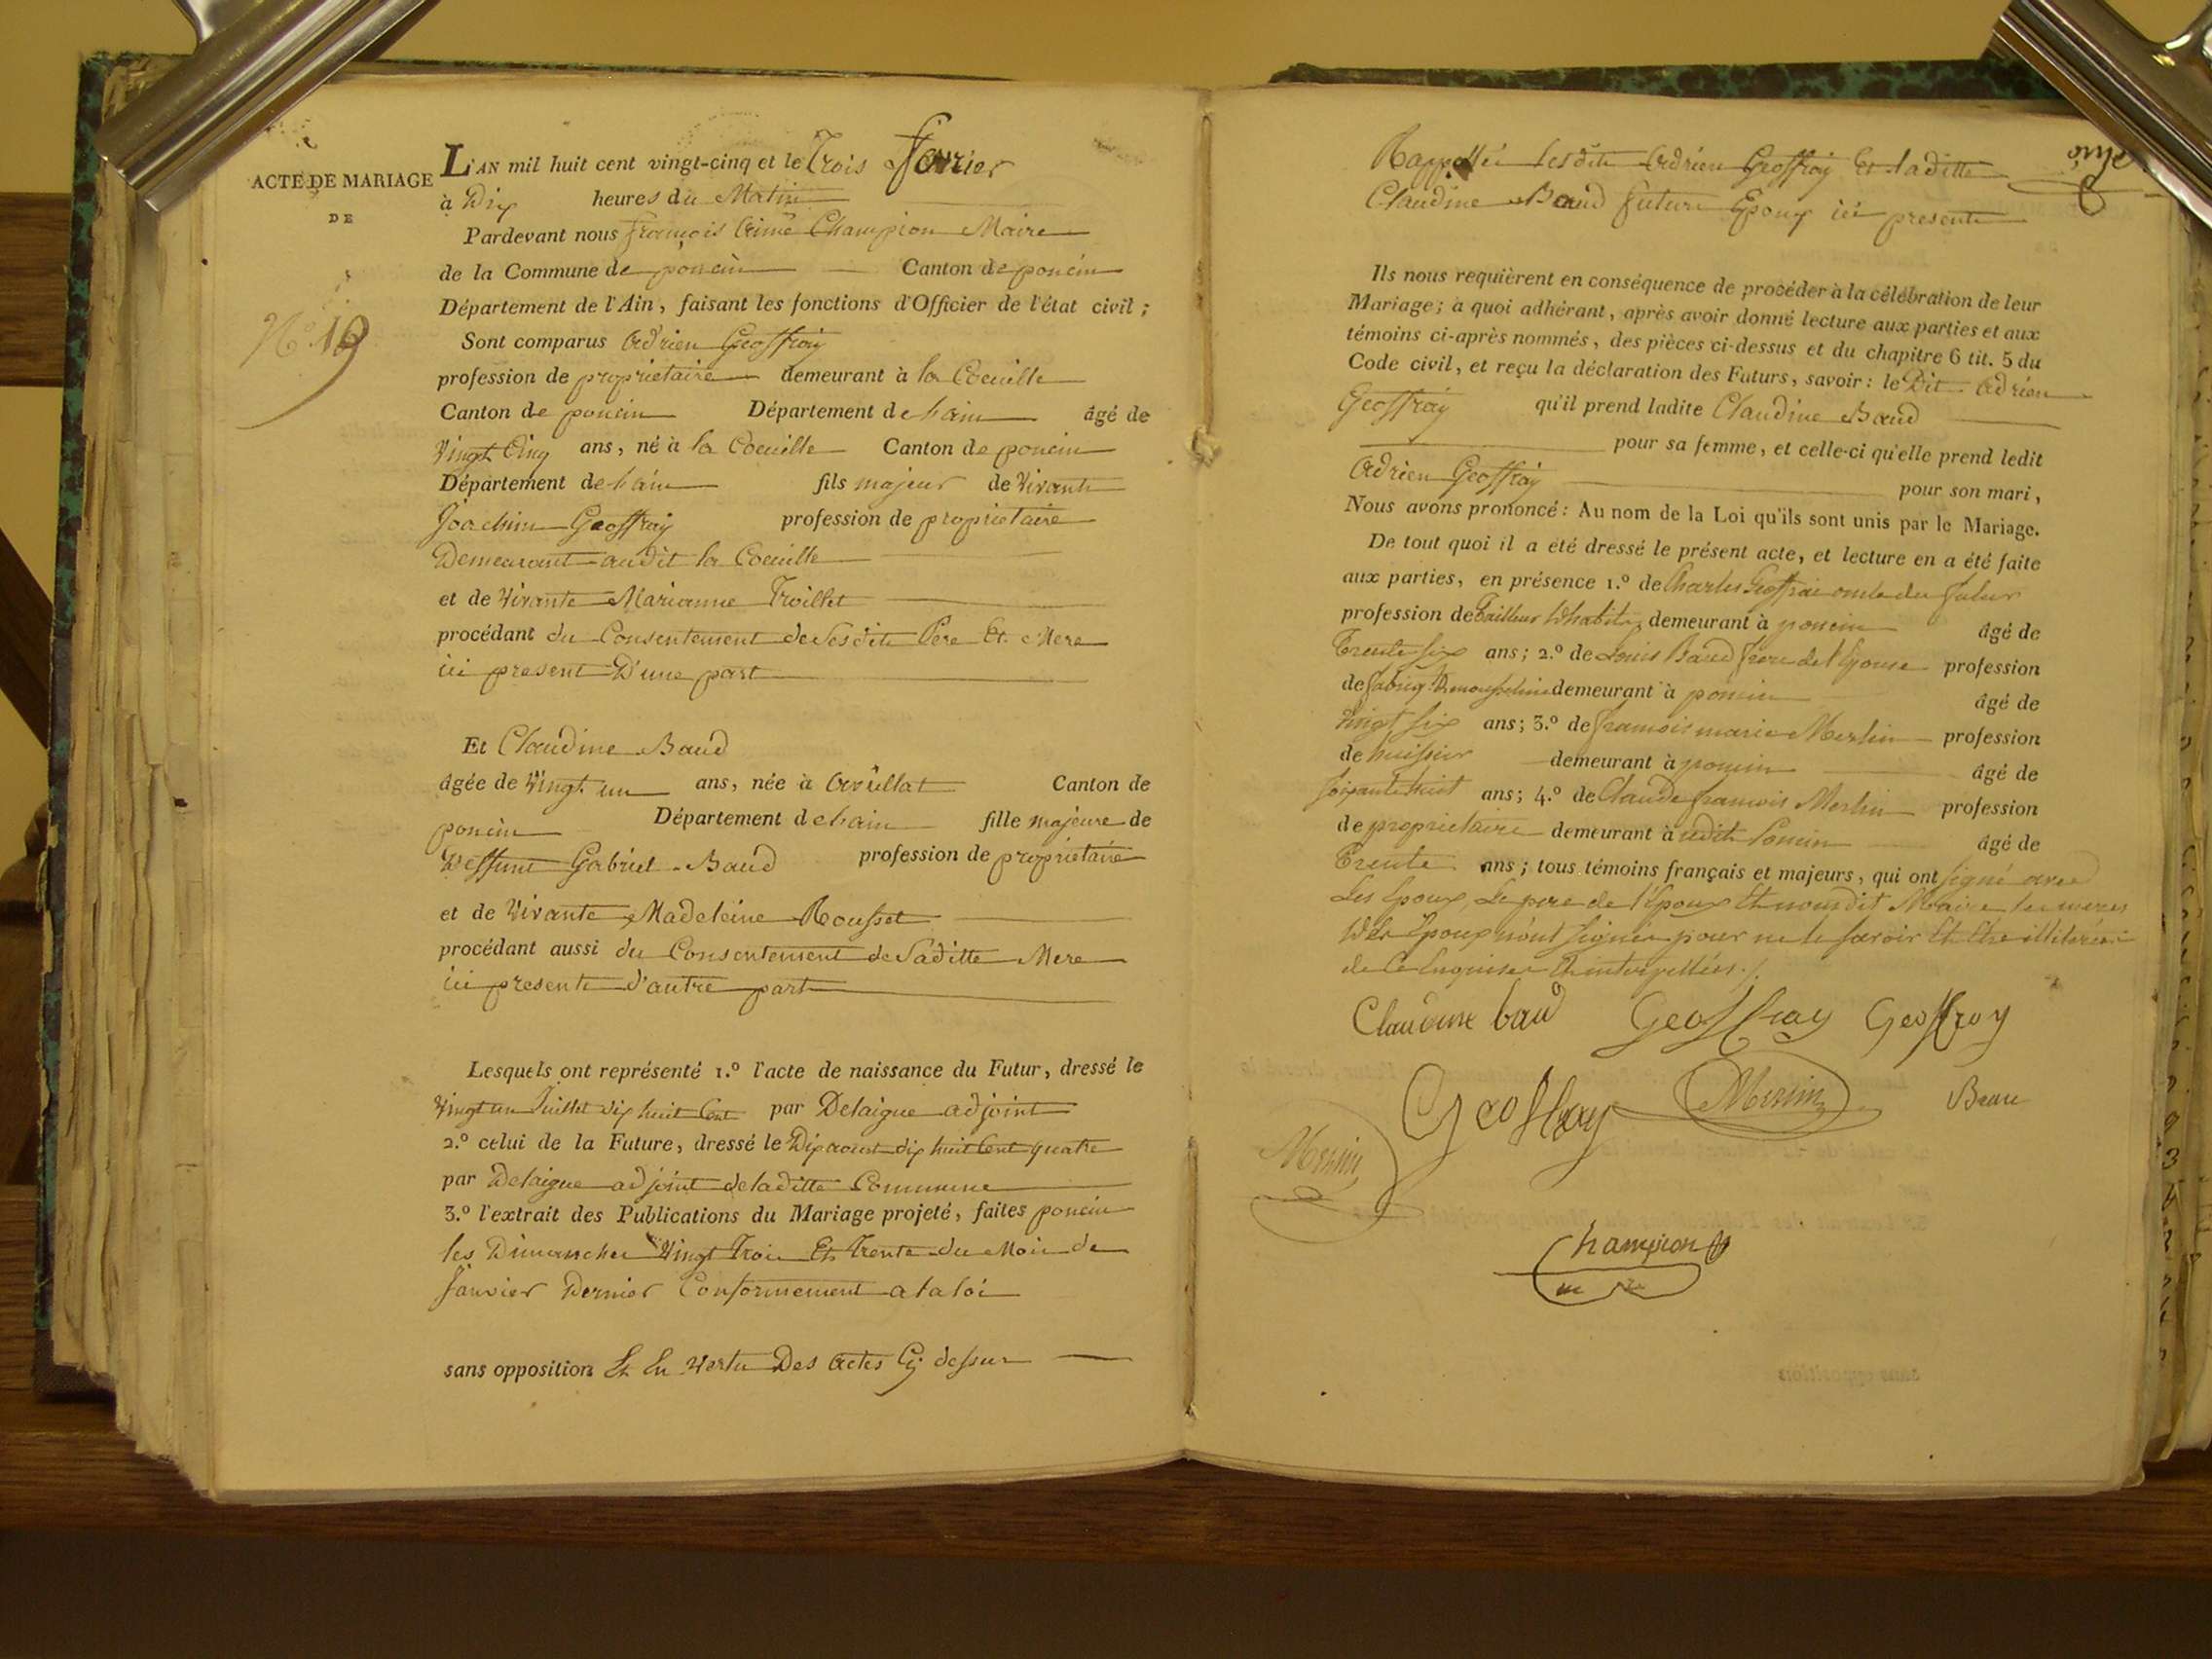 ACTE DE MARIAGE
DE
N.o 19
L'AN mil huit cent vingt-cinq et le Trois fevrier
à Dix heures du Matin
Pardevant nous françois Aimé Champion Maire
de la Commune de poncin Canton de poncin
Département de l'Ain, faisant les fonctions d'Officier de l'état civil ;
Sont comparus Adrien Geoffray
profession de proprietaire demeurant à la Coeuille
Canton de poncin Département de l'ain âgé de
Vingt Cinq ans, né à la Coeuille Canton de poncin
Département de l'ain fils majeur de Vivante
Joachim Geoffray profession de proprietaire
Demeurant audit la Coeuille
et de Vivante Marianne Troillet
procédant du Consentement de Sesdits Pere Et Mere
ici present D'une part
Et Claudine Baud
âgée de Vingt un ans, née à Avrillat Canton de
poncin Département de l'ain fille majeure de
Deffunt Gabriel Baud profession de proprietaire
et de Vivante Madeleine Rousset
procédant aussi du Consentement de Saditte Mere
ici presente d'autre part
Lesquels ont représenté 1.º l'acte de naissance du Futur, dressé le
Vingt un Juillet dix huit Cent par Delaigue adjoint
2.º celui de la Future, dressé le Dix aoust dix huit Cent quatre
par Delaigue adjoint de laditte Commune
3.º l'extrait des Publications du Mariage projeté, faites poncin
les Dimanches Vingt Trois Et Trente du Mois de
Janvier Dernier Conformement a la loi
sans opposition Et En Vertu Des Actes Cy dessus
onze
Rappellés Lesdits Adrien Geoffray Et laditte
Claudine Baud future Epoux ici presente
Ils nous requièrent en conséquence de procéder à la célébration de leur
Mariage ; à quoi adhérant, après avoir donné lecture aux parties et aux
témoins ci-après nommés, des pièces ci-dessus et du chapitre 6 tit. 5 du
Code civil, et reçu la déclaration des Futurs, savoir : le Dit Adrien
Geoffray qu'il prend ladite Claudine Baud
pour sa femme, et celle-ci qu'elle prend ledit
Adrien Geoffray pour son mari,
Nous avons prononcé : Au nom de la Loi qu'ils sont unis par le Mariage.
De tout quoi il a été dressé le présent acte, et lecture en a été faite
aux parties, en présence 1.º de Charles Geoffrai oncle du futur
profession de Tailleur d'habits demeurant à poncin âgé de
Trente six ans ; 2.º de Louis Baud frere de l'Epouse profession
de fabriqt. De mousseline demeurant à poncin âgé de
Vingt six ans ; 3.º de francois marie Merlin profession
de huissier demeurant à poncin âgé de
Soixante huit ans ; 4.º de Claude francois Merlin profession
de proprietaire demeurant à udit Poncin âgé de
Trente ans ; tous témoins français et majeurs, qui ont signé avec
Les Epoux, Le pere de l'Epoux Et nousdit Maire les meres
Des Epoux n'ont signées pour ne le savoir Et Etre illiterées
de Ce Enquises Et interpellées ./.
Claudine baud Geoffray Geoffroy
Geoffray Merlin Beau
Merlin
Champion
m re